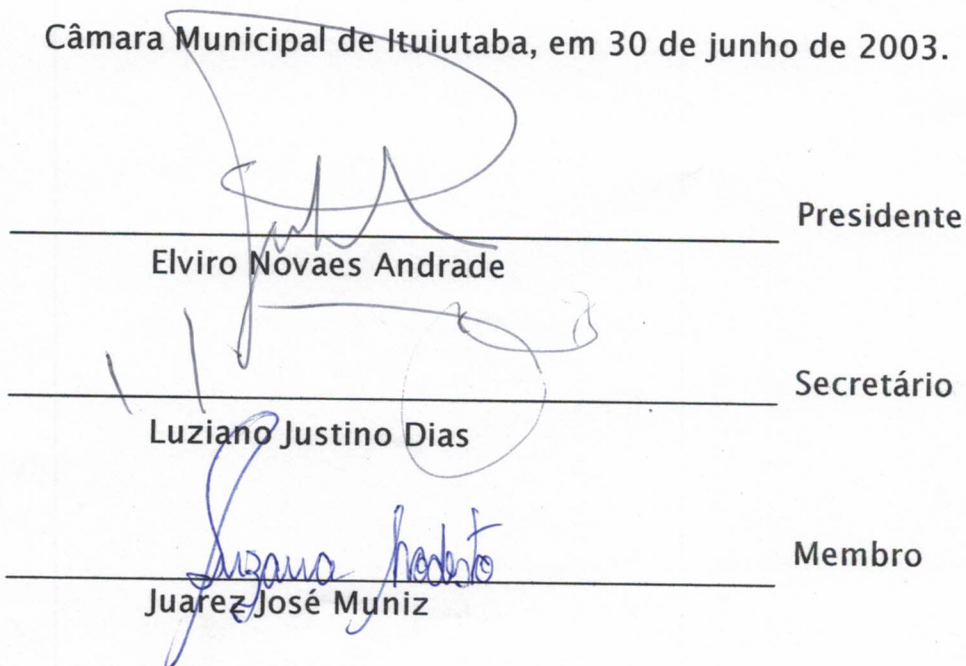 Câmara Municipal de Ituiutaba, em 30 de junho de 2003.
Presidente
Elviro Novaes Andrade
Secretário
Luziano Justino Dias
Suzana Modesto
Membro
Juarez José Muniz